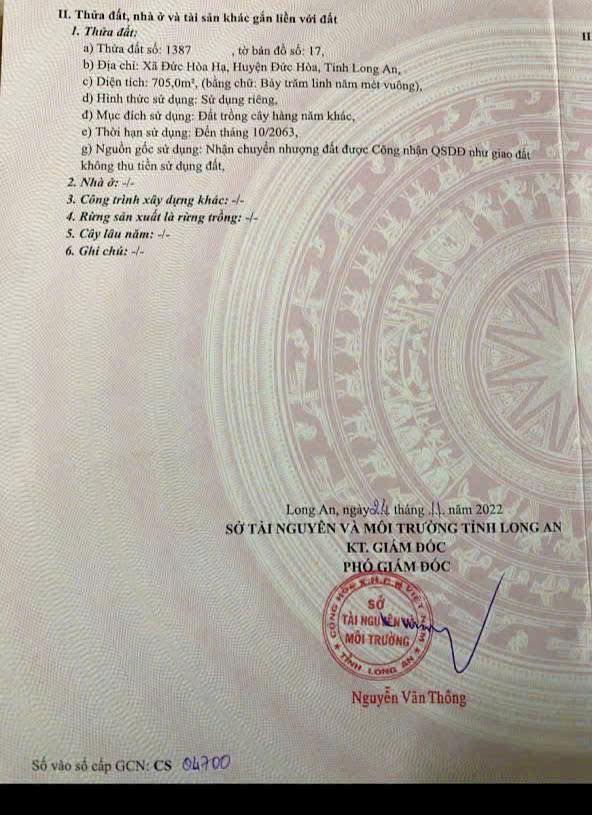 II. Thửa đất, nhà ở và tài sản khác gắn liền với đất
II
1. Thửa đất:
a) Thửa đất số: 1387 , tờ bản đồ số: 17,
b) Địa chỉ: Xã Đức Hòa Hạ, Huyện Đức Hòa, Tỉnh Long An,
c) Diện tích: 705,0m², (bằng chữ: Bảy trăm linh năm mét vuông),
d) Hình thức sử dụng: Sử dụng riêng,
đ) Mục đích sử dụng: Đất trồng cây hàng năm khác,
e) Thời hạn sử dụng: Đến tháng 10/2063,
g) Nguồn gốc sử dụng: Nhận chuyển nhượng đất được Công nhận QSDĐ như giao đất
không thu tiền sử dụng đất,
2. Nhà ở: -/-
3. Công trình xây dựng khác: -/-
4. Rừng sản xuất là rừng trồng: -/-
5. Cây lâu năm: -/-
6. Ghi chú: -/-
Long An, ngày 24 tháng 11 năm 2022
SỞ TÀI NGUYÊN VÀ MÔI TRƯỜNG TỈNH LONG AN
KT. GIÁM ĐỐC
PHÓ GIÁM ĐỐC
CỘNG HÒA X.H.C.N VIỆT NAM
SỞ
TÀI NGUYÊN VÀ
MÔI TRƯỜNG
TỈNH LONG AN
Nguyễn Văn Thông
Số vào sổ cấp GCN: CS 04700